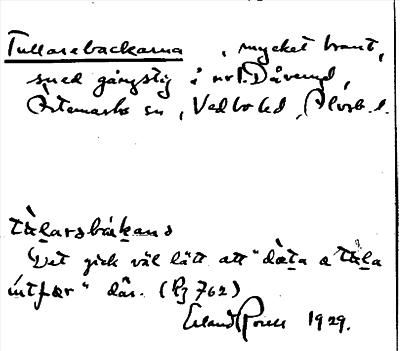 Tullarebackarna, mycket brant,
sned gångstig i
Ärtemarks sn, Vedbo hd, Älvsb. l.
tùlarsbákans
Det gick väl lätt att "dæta a tùla
intfær" där. (Rz 762)
Erland Rosell 1929.